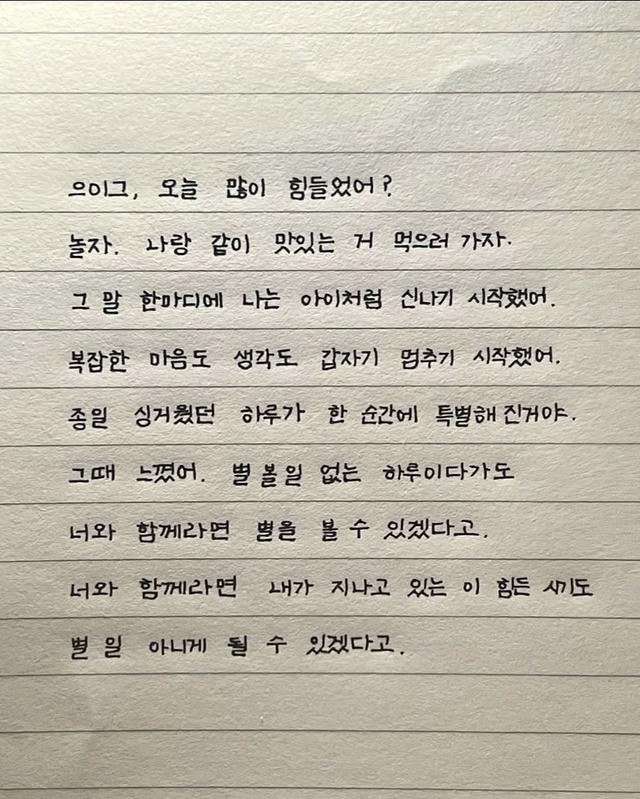 으이그, 오늘 많이 힘들었어?
놀자. 나랑 같이 맛있는 거 먹으러 가자.
그 말 한마디에 나는 아이처럼 신나기 시작했어.
복잡한 마음도 생각도 갑자기 멈추기 시작했어.
종일 싱거웠던 하루가 한 순간에 특별해진거야.
그때 느꼈어. 별 볼 일 없는 하루이다가도
너와 함께라면 별을 볼 수 있겠다고.
너와 함께라면 내가 지나고 있는 이 힘든 시기도
별 일 아니게 될 수 있겠다고.